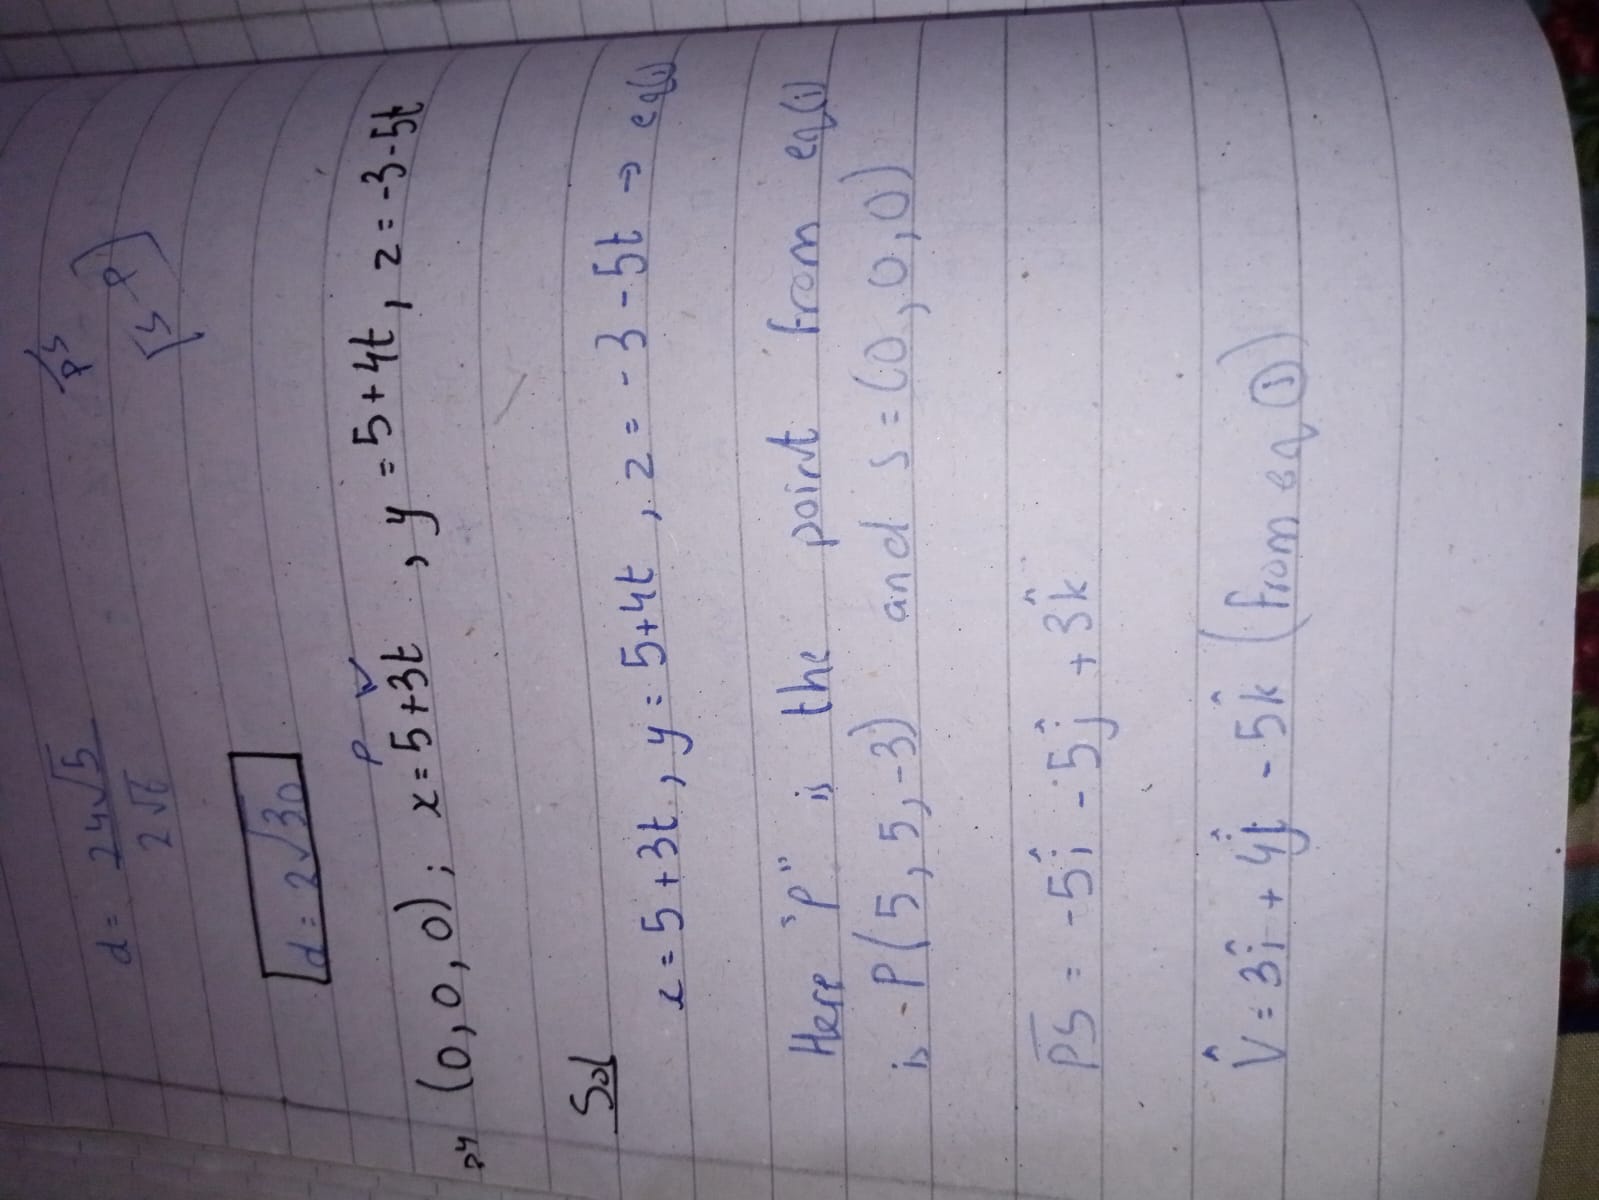 PS
[S-P]
d = 24√5
2√6
d = 2√30
P V
24 (0,0,0); x = 5+3t , y = 5+4t, z = -3-5t
Sol
x = 5+3t, y = 5+4t, z = -3-5t → eq(i)
Here "P" is the point from eq(i)
is P(5,5,-3) and S=(0,0,0)
PS = -5î -5ĵ +3k̂
V̂ = 3î + 4ĵ - 5k̂ (from eq (i))